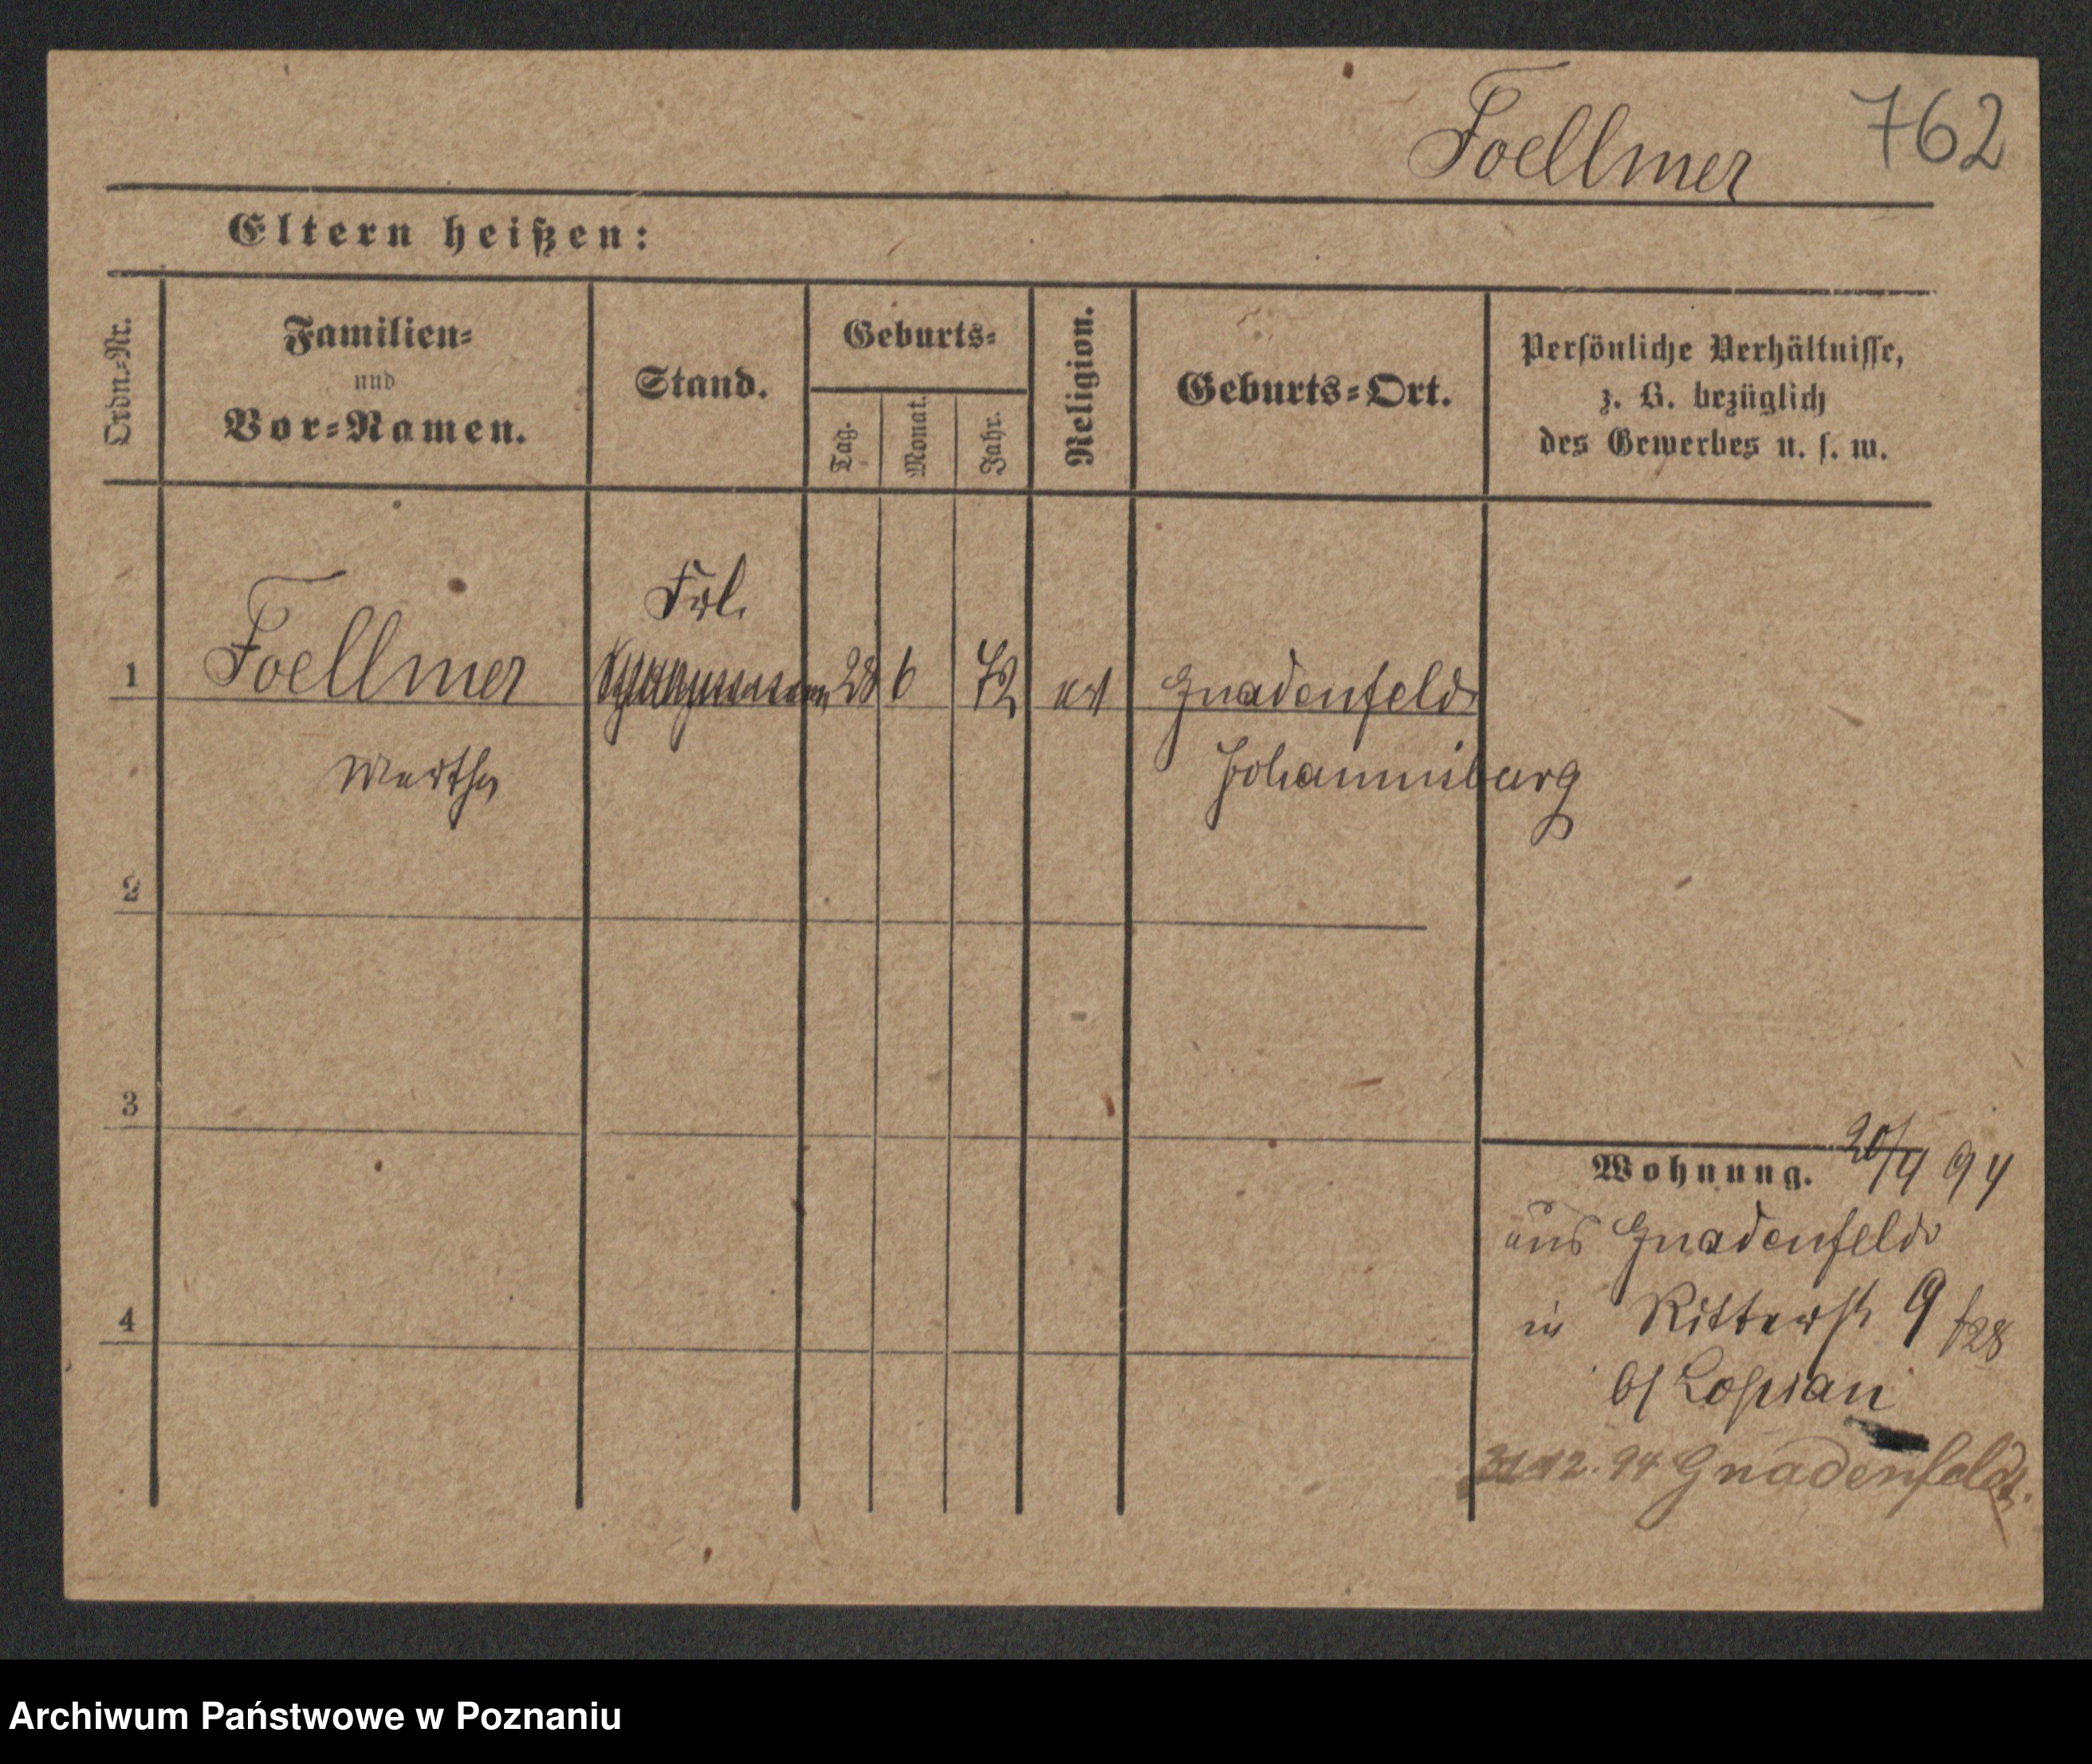 Foellmer 762
Eltern heißen:
Ordn.-Nr.
Familien-
und
Vor-Namen.
Stand.
Geburts-
Tag.
Monat.
Jahr.
Religion.
Geburts-Ort.
Persönliche Verhältnisse,
z. B. bezüglich
des Gewerbes u. s. w.
Frl.
1 Foellmer 28 6 72 ev Gnadenfeld
Martha Johannisburg
2
3
4
Wohnung. 20/4 94
aus Gnadenfeld
in Ritterst 9
b/
31.12.94 Gnadenfeld.
Archiwum Państwowe w Poznaniu